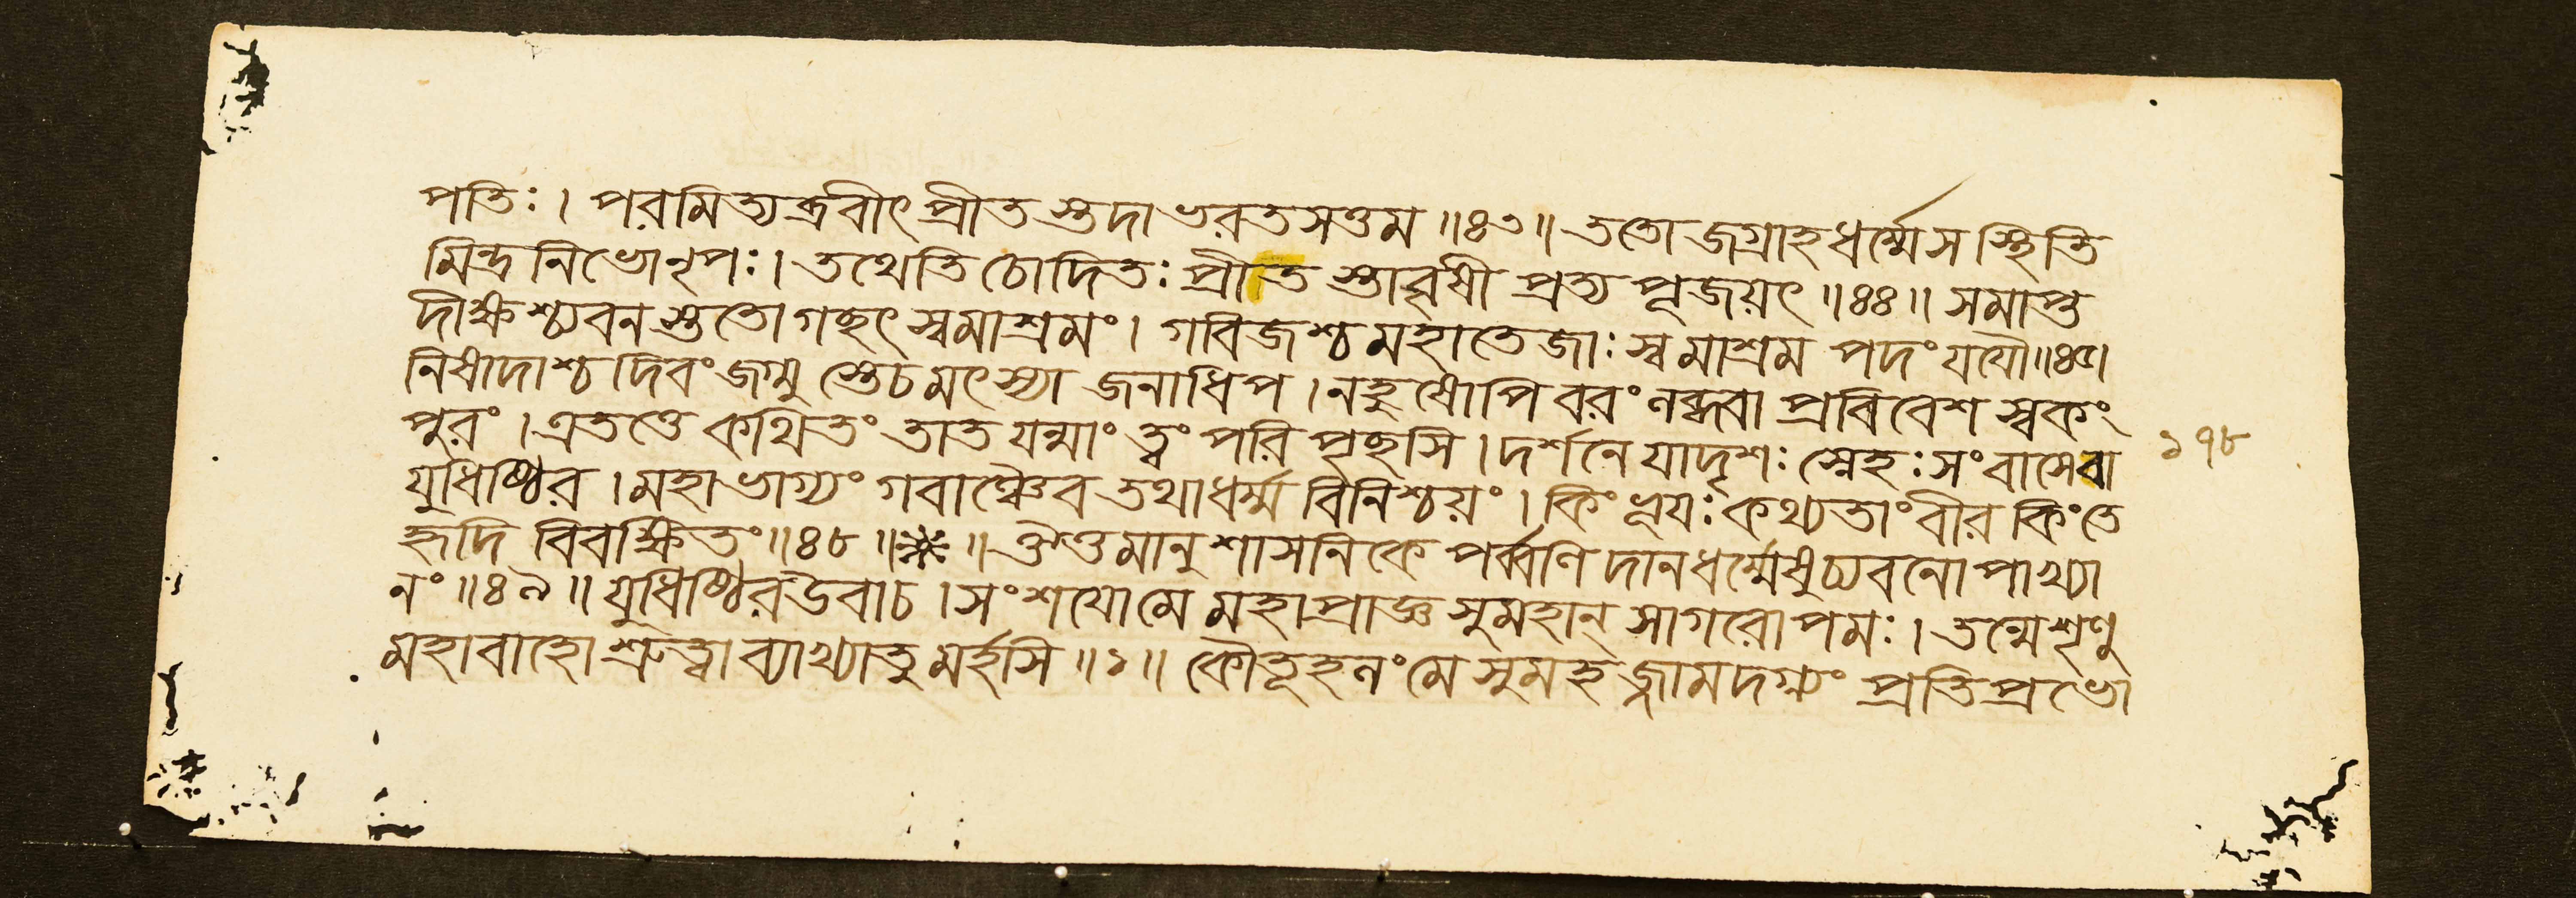 পতিঃ। পরমিত্যব্রবীৎ প্রীতস্তদা ভরতসত্তম॥৪৩॥ ততো জগ্রাহ ধর্ম্মে স স্থিতি
মিন্দ্রনিভো নৃপঃ। তথেতি চোদিতঃ প্রীতস্তাবৃষী প্রত্যপূজয়ৎ॥৪৪॥ সমাপ্ত
দীক্ষশ্চ্যবনস্ততো গছৎ স্বমাশ্রমং। গবিজশ্চ মহাতেজাঃ স্বমাশ্রম পদং যযৌ॥৪৫।
নিষাদাশ্চ দিবং জগ্মুস্তেচ মৎস্যা জনাধিপ। নহুষোপি বরং লব্ধবা প্রবিবেশ স্বকং
পুরং। এতত্তে কথিতং তাত যন্মাং ত্বং পরিপৃছসি। দর্শনে যাদৃশঃ স্নেহঃ সংবাসেবা
১৭৮
যুধিষ্ঠির। মহাভাগ্যং গবাঞ্চৈব তথা ধর্ম্ম বিনিশ্চয়ং। কিং ভূয়ঃ কথ্যতাং বীর কিং তে
হৃদি বিবক্ষিতং॥৪৮॥ ॥ ঔত্তমানুশাসনিকে পর্ব্বণি দানধর্ম্মেষু চ্যবনোপাখ্যা
নং॥৪৯॥ যুধিষ্ঠির উবাচ। সংশযো মে মহাপ্রাজ্ঞ সুমহান্ সাগরোপমঃ। তন্মে শৃণু
মহাবাহো শ্রুত্বা ব্যাখ্যাতু মর্হসি॥১॥ কৌতূহলং মে সুমহজ্জামদগ্ন্যং প্রতি প্রভো